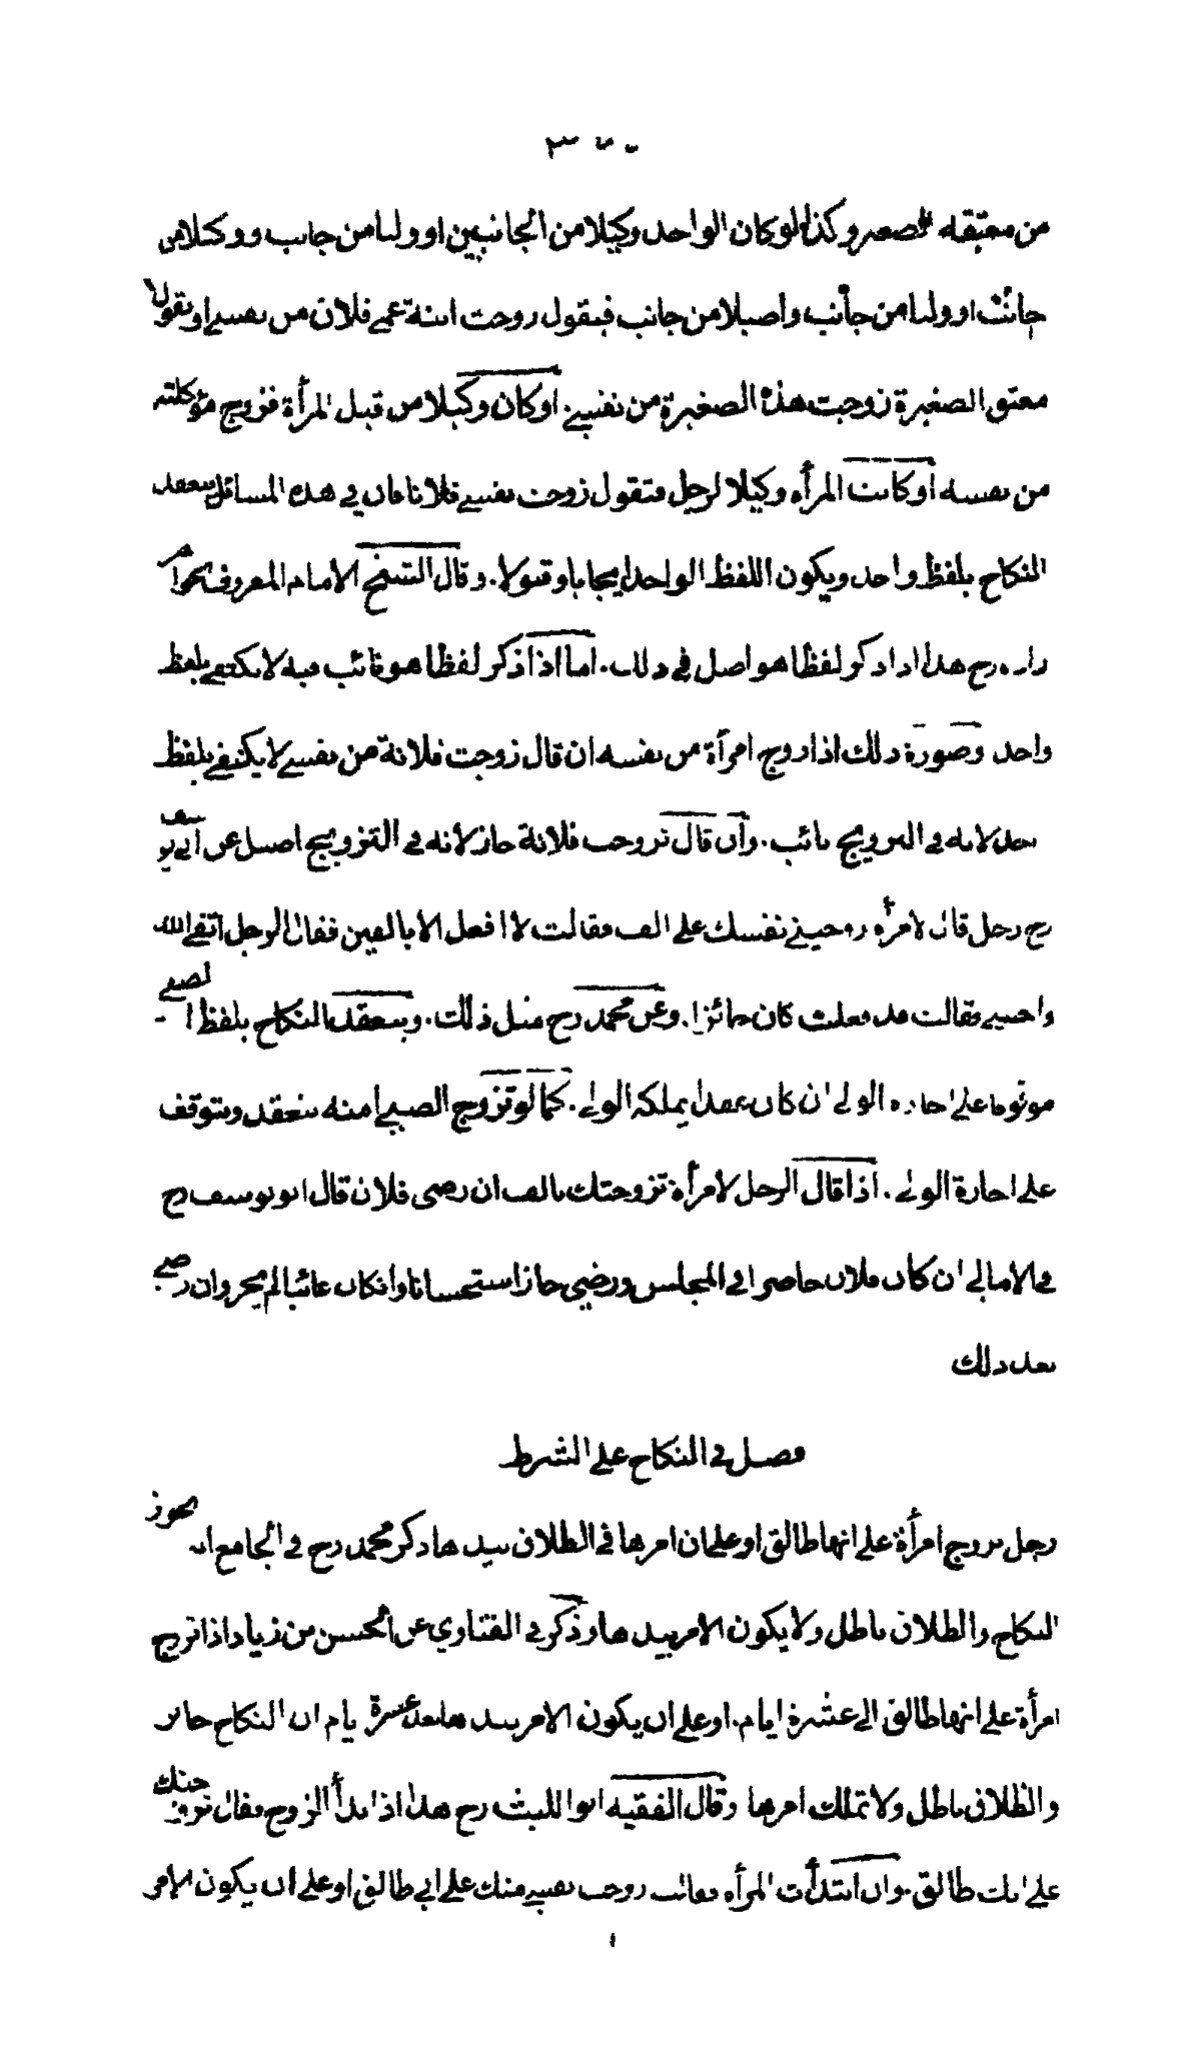 من معتقه الصغير وكذا لو كان الواحد وكيلا من الجانبين او وليا من جانب ووكيلا من
جانب او وليا من جانب واصيلا من جانب فيقول زوجت ابنة عمي فلان من نفسي او يقول
معتق الصغيرة زوجت هذه الصغيرة من نفسي. او كان وكيلا من قبل المرأة فزوج مؤكلته
من نفسه او كانت المرأه وكيلا لرجل فتقول زوجت نفسي فلانا فان في هذه المسائل ينعقد
النكاح بلفظ واحد ويكون اللفظ الواحد ايجابا وقبولا. وقال الشيخ الامام المعروف بخواهر
زاده رح هذا اذا ذكر لفظا هو اصل في ذلك. اما اذا ذكر لفظا هو نائب فيه لا يكتفي بلفظ
واحد وصورة ذلك اذا زوج امرأة من نفسه ان قال زوجت فلانة من نفسي لا يكتفي بلفظ
لانه في التزويج نائب. وان قال تزوجت فلانة جاز لانه في التزويج اصيل عن ابي يوسف
رح رجل قال لامرأه زوجيني نفسك على الف فقالت لا افعل الا بالفين فقال الرجل اتقي الله
فقالت قد فعلت كان جائزا. وعن محمد رح مثل ذلك. وينعقد النكاح بلفظ الصبي
موقوفا على اجازه الولي ان كان عقدا يملكه الولي. كما لو تزوج الصبي امنه ينعقد ويتوقف
على اجازة الولي. اذا قال الرجل لامرأة تزوجتك بالف ان رضي فلان قال ابو يوسف رح
في الامالي ان كان فلان حاضرا في المجلس ورضي جاز استحسانا وان كان غائبا لم يجز وان رضي
بعد ذلك
فصل في النكاح على الشرط
رجل تزوج امرأة على انها طالق او على ان امرها في الطلاق بيدها ذكر محمد رح في الجامع انه يجوز
النكاح والطلاق باطل ولا يكون الامر بيدها وذكر في الفتاوي عن الحسن بن زياد اذا تزوج
امرأة على انها طالق الى عشرة ايام. او على ان يكون الامر بيدها بعد عشرة يام ان النكاح جائز
والطلاق باطل ولا تملك امرها وقال الفقيه ابو الليث رح هذا اذا بدأ الزوج فقال تزوجتك
على انك طالق. وان ابتدأت المرأه فقالت زوجت نفسي منك على اني طالق او على ان يكون الامر